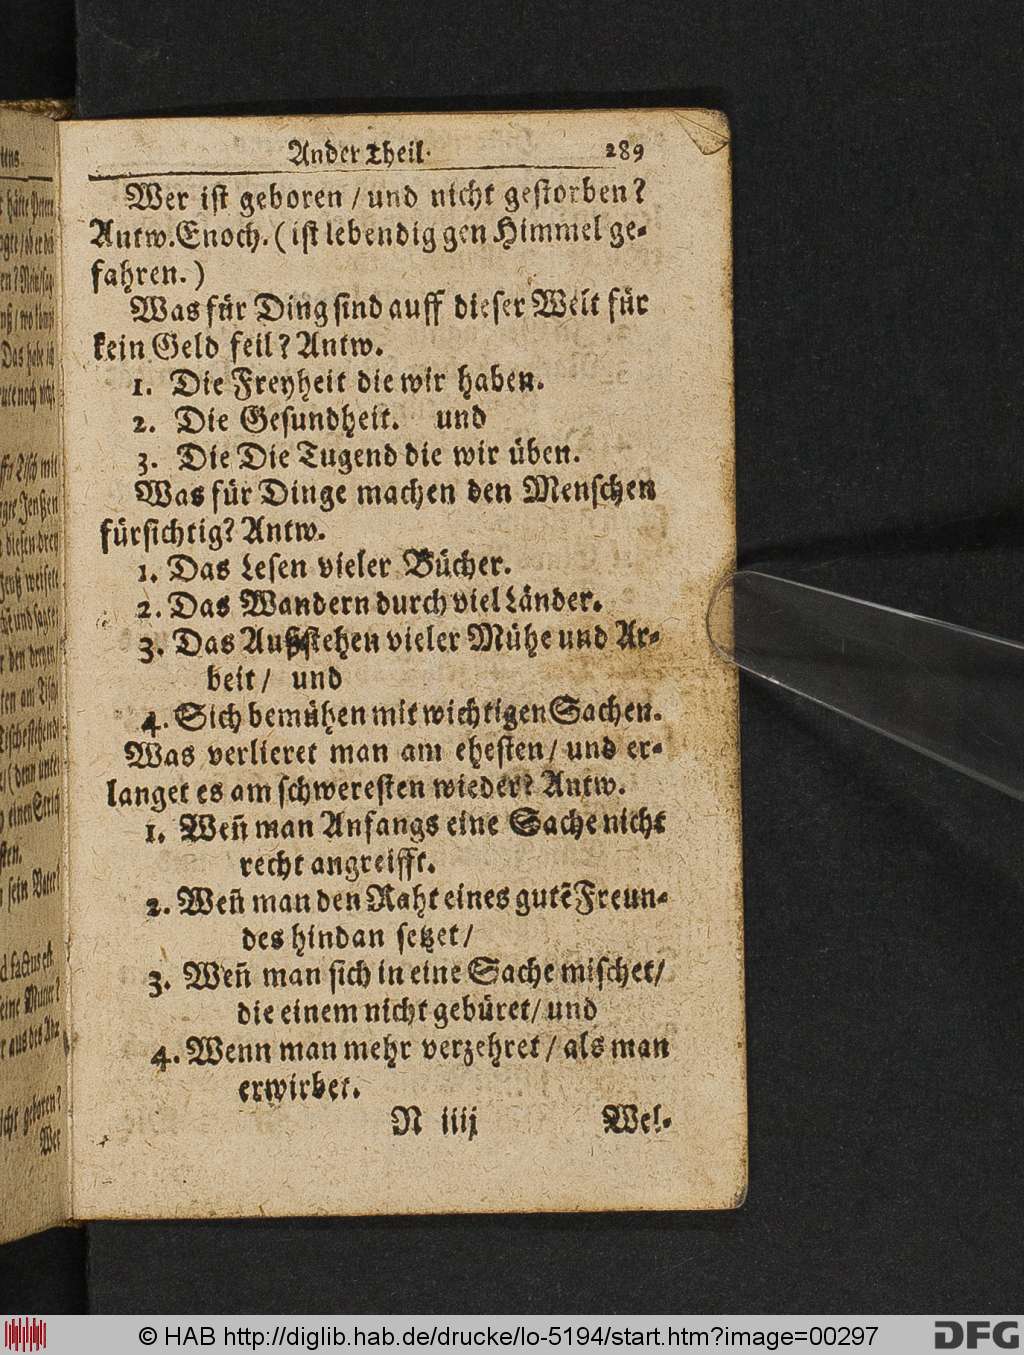 Ander Theil. 289
Wer ist geboren / und nicht gestorben?
Antw. Enoch. ( ist lebendig gen Himmel ge-
fahren. )
Was für Ding sind auff dieser Welt für
kein Geld feil? Antw.
1. Die Freyheit die wir haben.
2. Die Gesundheit. und
3. Die Die Tugend die wir üben.
Was für Dinge machen den Menschen
fürsichtig? Antw.
1. Das Lesen vieler Bücher.
2. Das Wandern durch viel Länder.
3. Das Außstehen vieler Mühe und Ar-
beit / und
4. Sich bemühen mit wichtigen Sachen.
Was verlieret man am ehesten / und er-
langet es am schweresten wieder? Antw.
1. Weñ man Anfangs eine Sache nicht
recht angreifft.
2. Weñ man den Raht eines gutẽ Freun-
des hindan setzet /
3. Weñ man sich in eine Sache mischet /
die einem nicht gebüret / und
4. Wenn man mehr verzehret / als man
erwirbet.
N iiij Wel-
© HAB http://diglib.hab.de/drucke/lo-5194/start.htm?image=00297
DFG